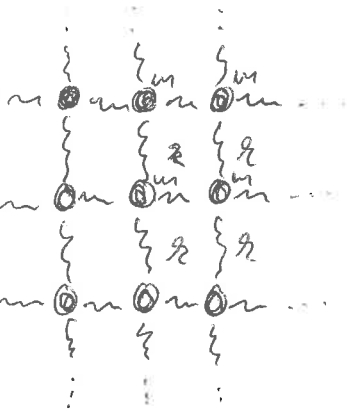 m m
k k
m m
k k